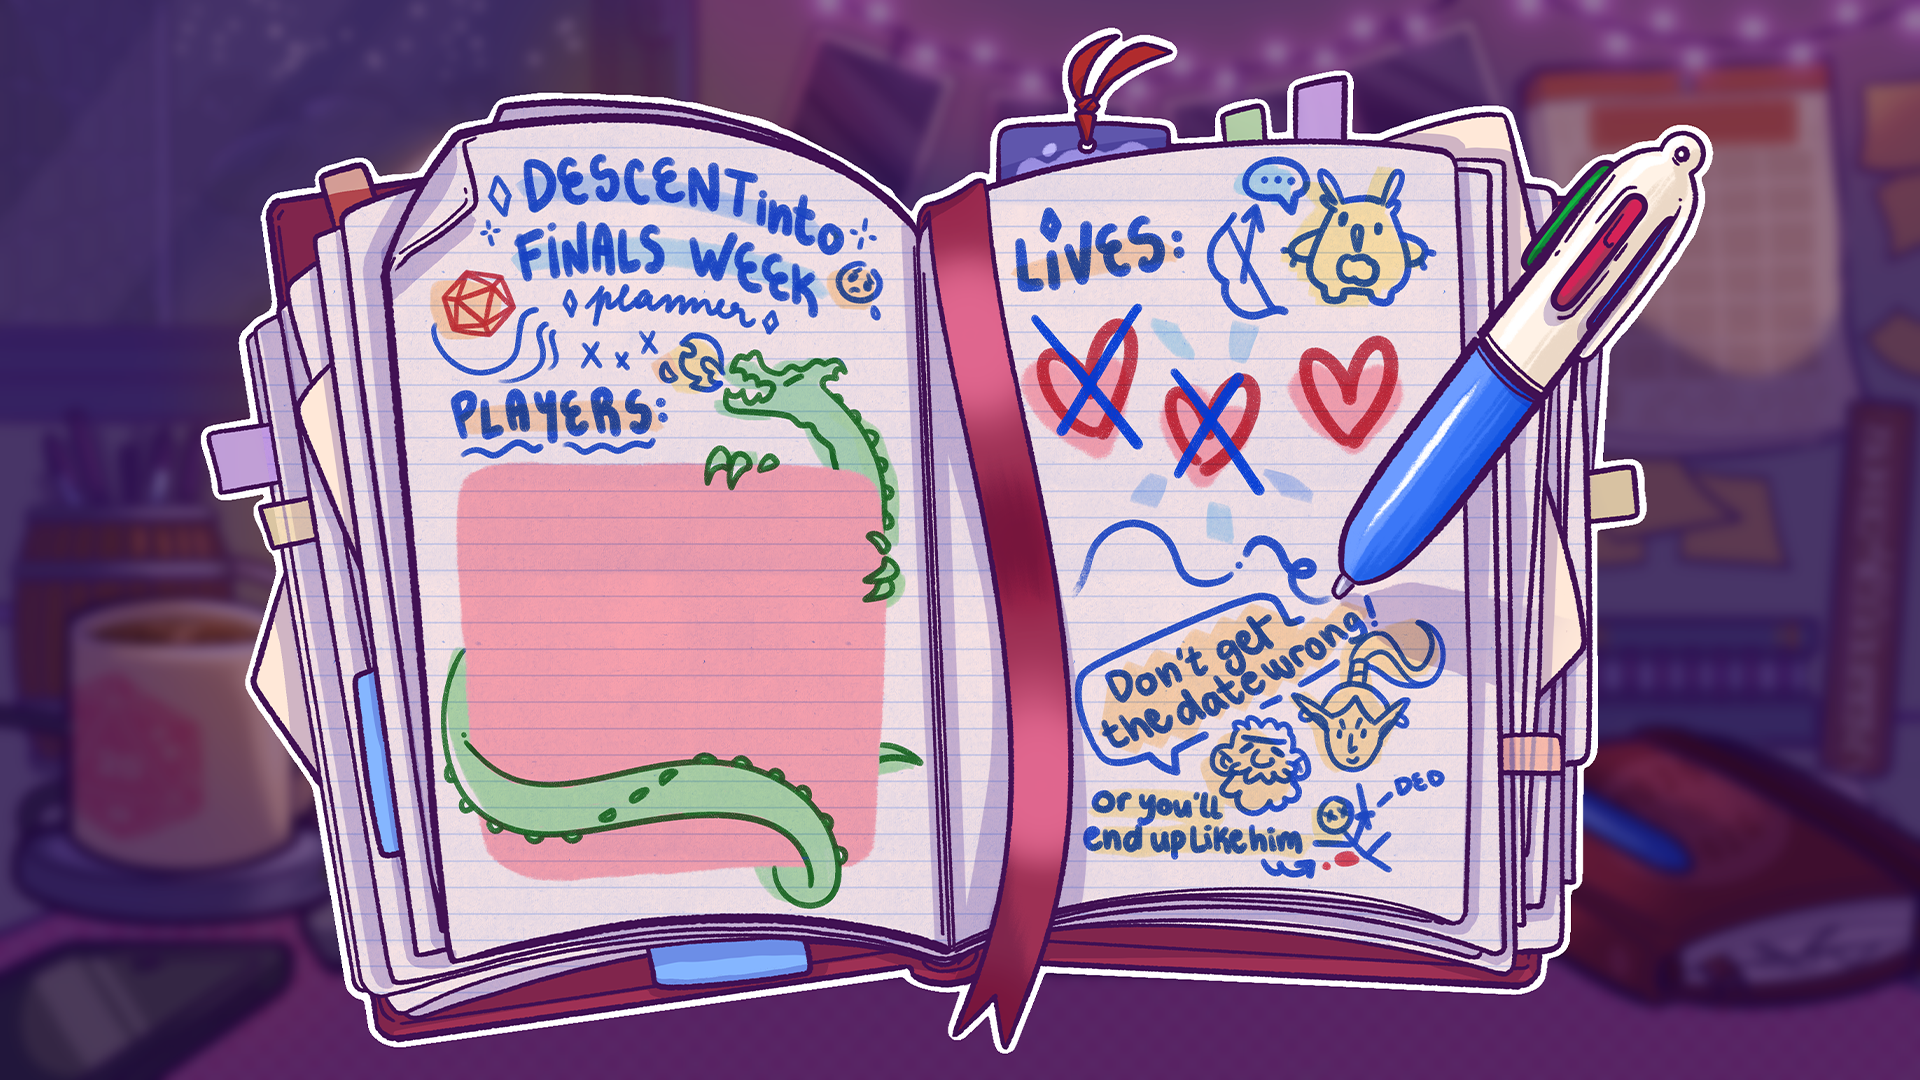 DESCENT into
FiNALS WEEK
planner
PLAYERS:
LiVES:
Don't get
the date wrong!
or you'll
end up Like him
DED